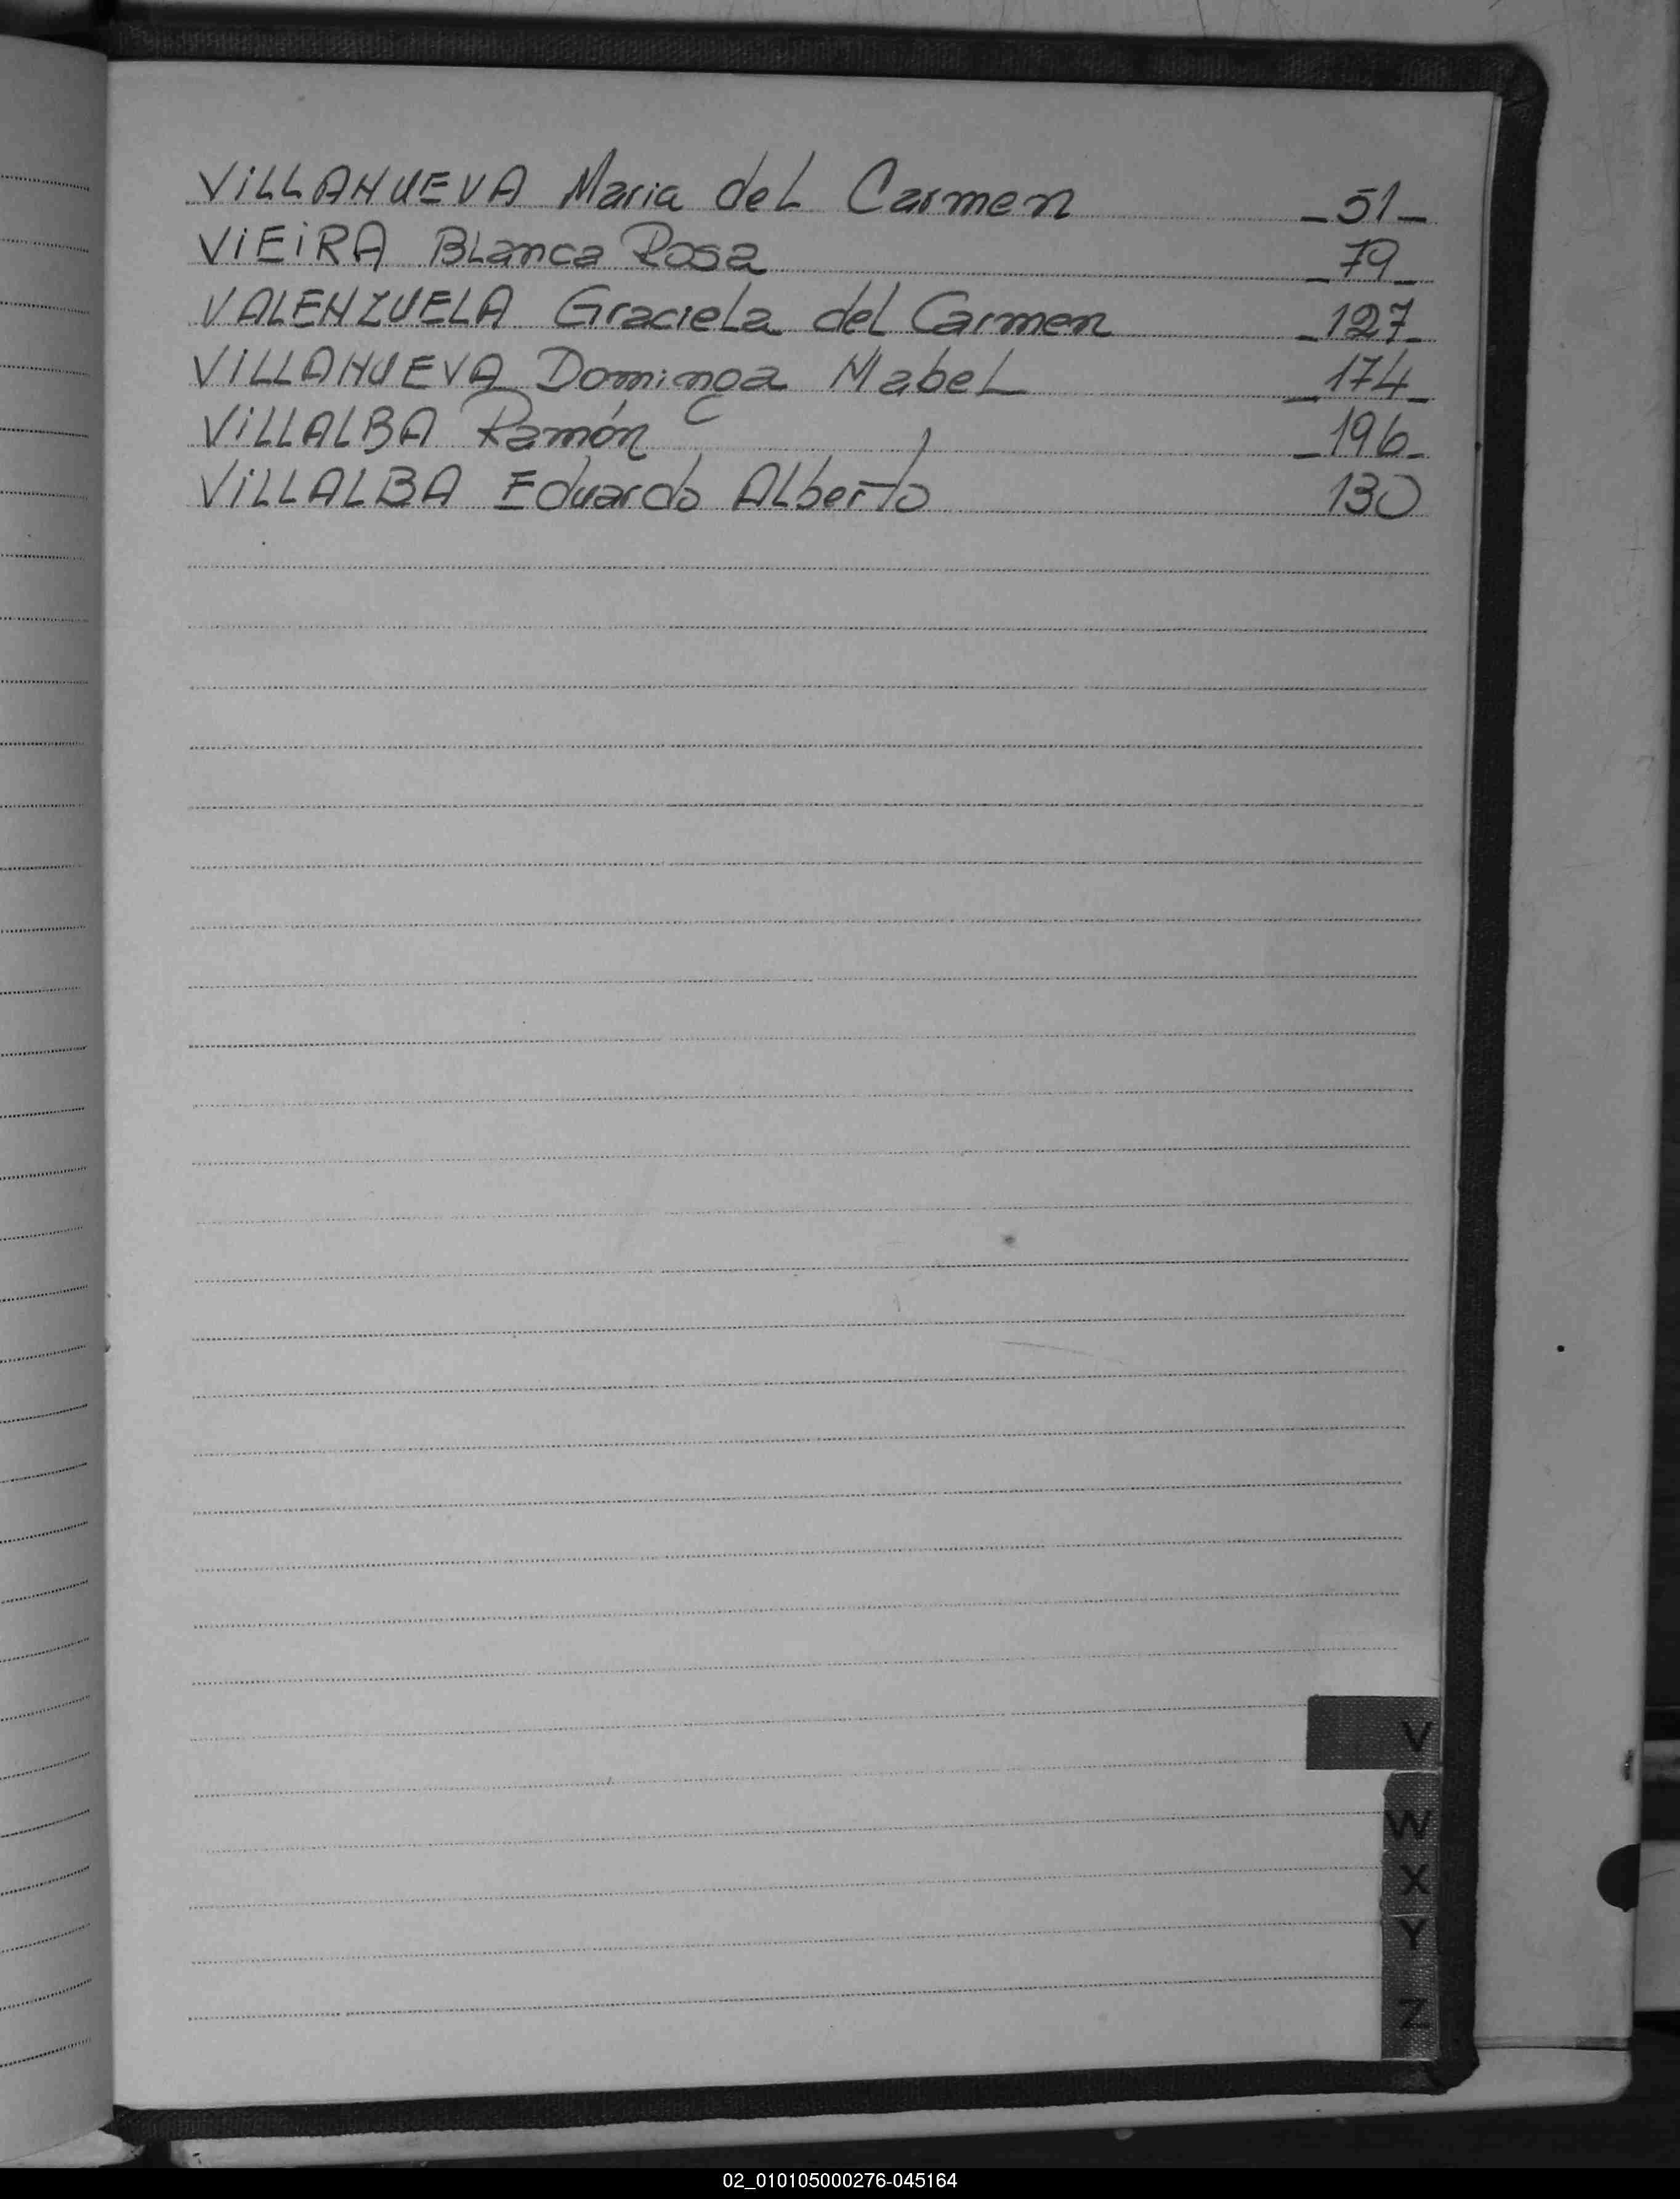 VILLANUEVA Maria del Carmen _51_
VIEIRA Blanca Rosa _79_
VALENZUELA Graciela del Carmen _127_
VILLANUEVA Dominga Mabel _174_
VILLALBA Ramón _196_
VILLALBA Eduardo Alberto 130
V
W
X
Y
Z
02_010105000276-045164